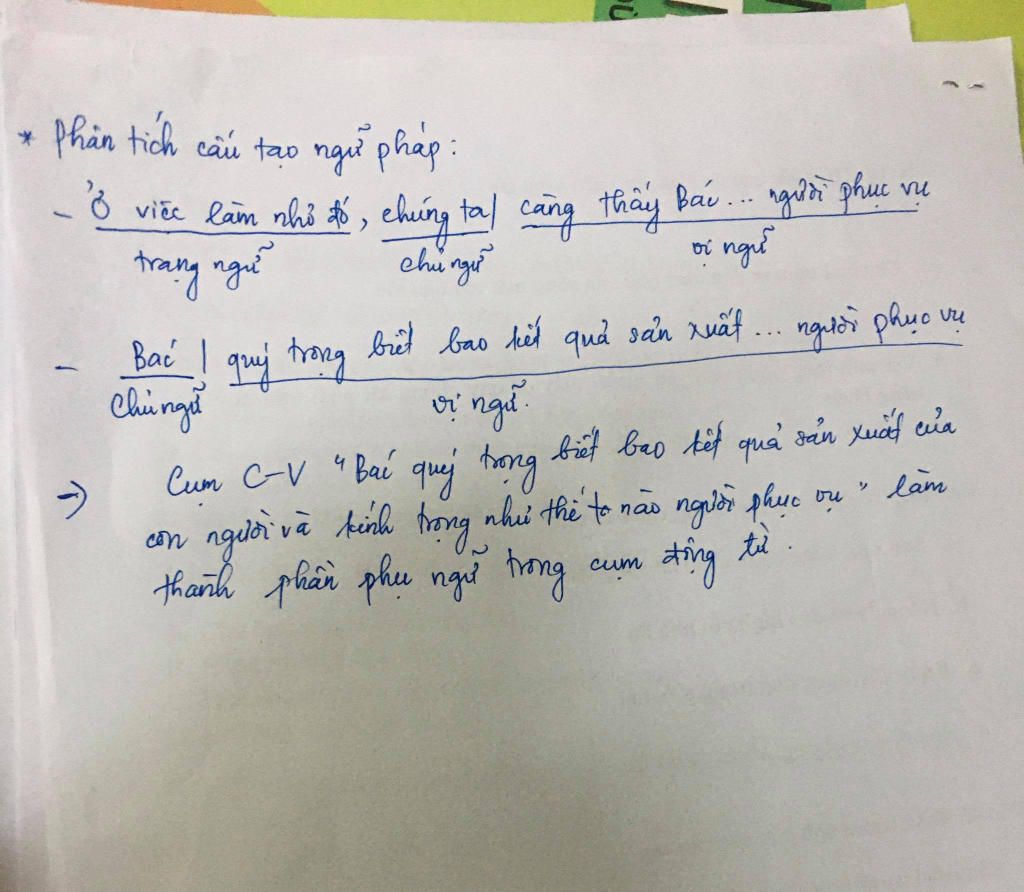 * Phân tích cấu tạo ngữ pháp:
- Ở việc làm nhỏ đó, chúng ta| càng thấy Bác... người phục vụ
trạng ngữ chủ ngữ vị ngữ
- Bác | quý trọng biết bao kết quả sản xuất... người phục vụ
Chủ ngữ vị ngữ.
-> Cụm C-V "Bác quý trọng biết bao kết quả sản xuất của
con người và kính trọng như thế nào người phục vụ" làm
thành phần phụ ngữ trong cụm động từ.